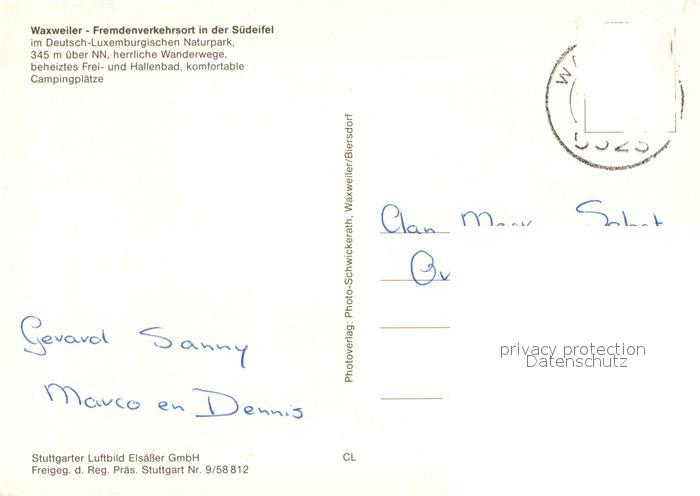 Waxweiler - Fremdenverkehrsort in der Südeifel
im Deutsch-Luxemburgischen Naturpark,
345 m über NN, herrliche Wanderwege,
beheiztes Frei- und Hallenbad, komfortable
Campingplätze
Photoverlag: Photo-Schwickerath, Waxweiler/Biersdorf
Gerard Sanny
Marco en Dennis
privacy protection
Datenschutz
Stuttgarter Luftbild Elsäßer GmbH
Freigeg. d. Reg. Präs. Stuttgart Nr. 9/58 812
CL